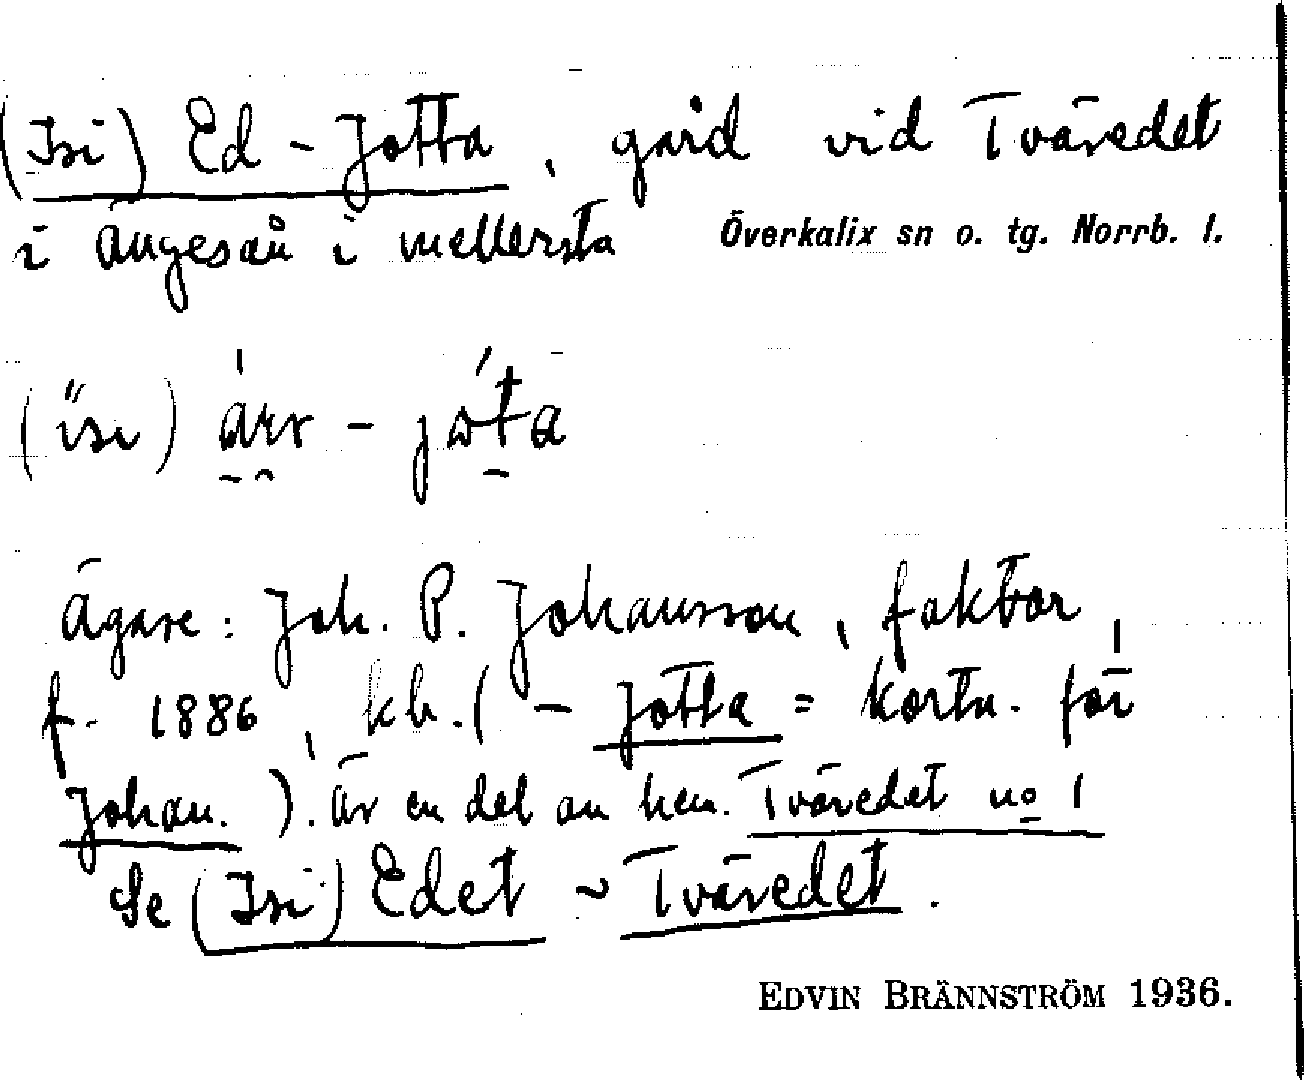 (Isi) Ed-Jotta, gård vid Tväredet
i Ängesån i mellersta Överkalix sn o. tg. Norrb. l.
Ägare: Joh. P. Johansson, faktor,
f. 1886, kh. (-Jotta = kortn. för
Johan.). Är en del av hem. Tväredet no 1
Se (Isi) Edet ~ Tväredet.
EDVIN BRÄNNSTRÖM 1936.